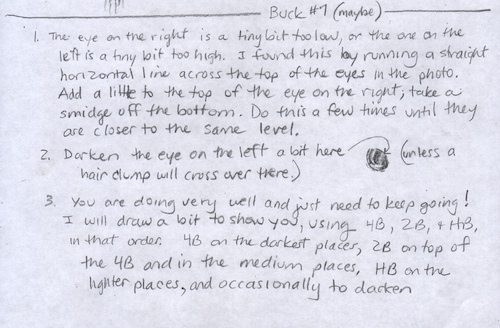 Buck #1 (maybe)
1. The eye on the right is a tiny bit too low, or the one on the
left is a tiny bit too high. I found this by running a straight
horizontal line across the top of the eyes in the photo.
Add a little to the top of the eye on the right; take a
smidge off the bottom. Do this a few times until they
are closer to the same level.
2. Darken the eye on the left a bit here (unless a
hair clump will cross over there.)
3. You are doing very well and just need to keep going!
I will draw a bit to show you, using 4B, 2B, + HB,
in that order. 4B on the darkest places, 2B on top of
the 4B and in the medium places, HB on the
lighter places, and occasionally to darken